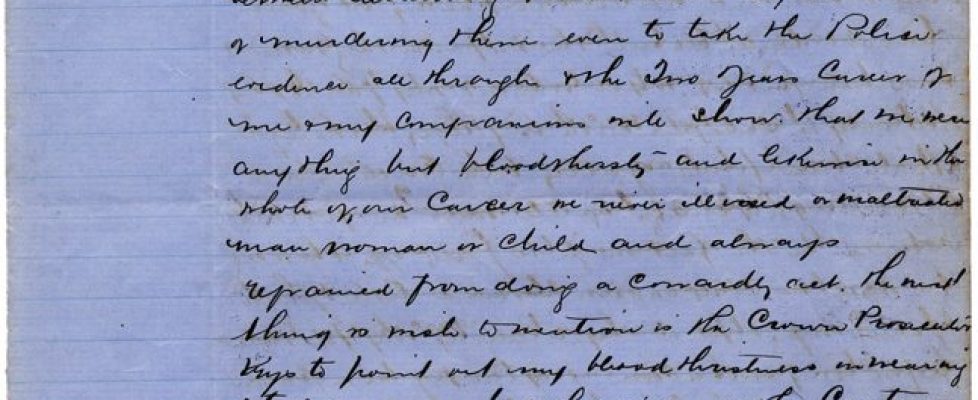 of murdering them even to take the Police
evidence all through & the Two Years Career of
me & my Companions will show. that we were
anything but bloodthirsty and likewise in the
whole of our Career we never ill used or maltreated
man woman or child and always
refrained from doing a cowardly act. the next
thing I wish to mention is the Crown Prosecutor
trys to point out my bloodthirstness in wearing